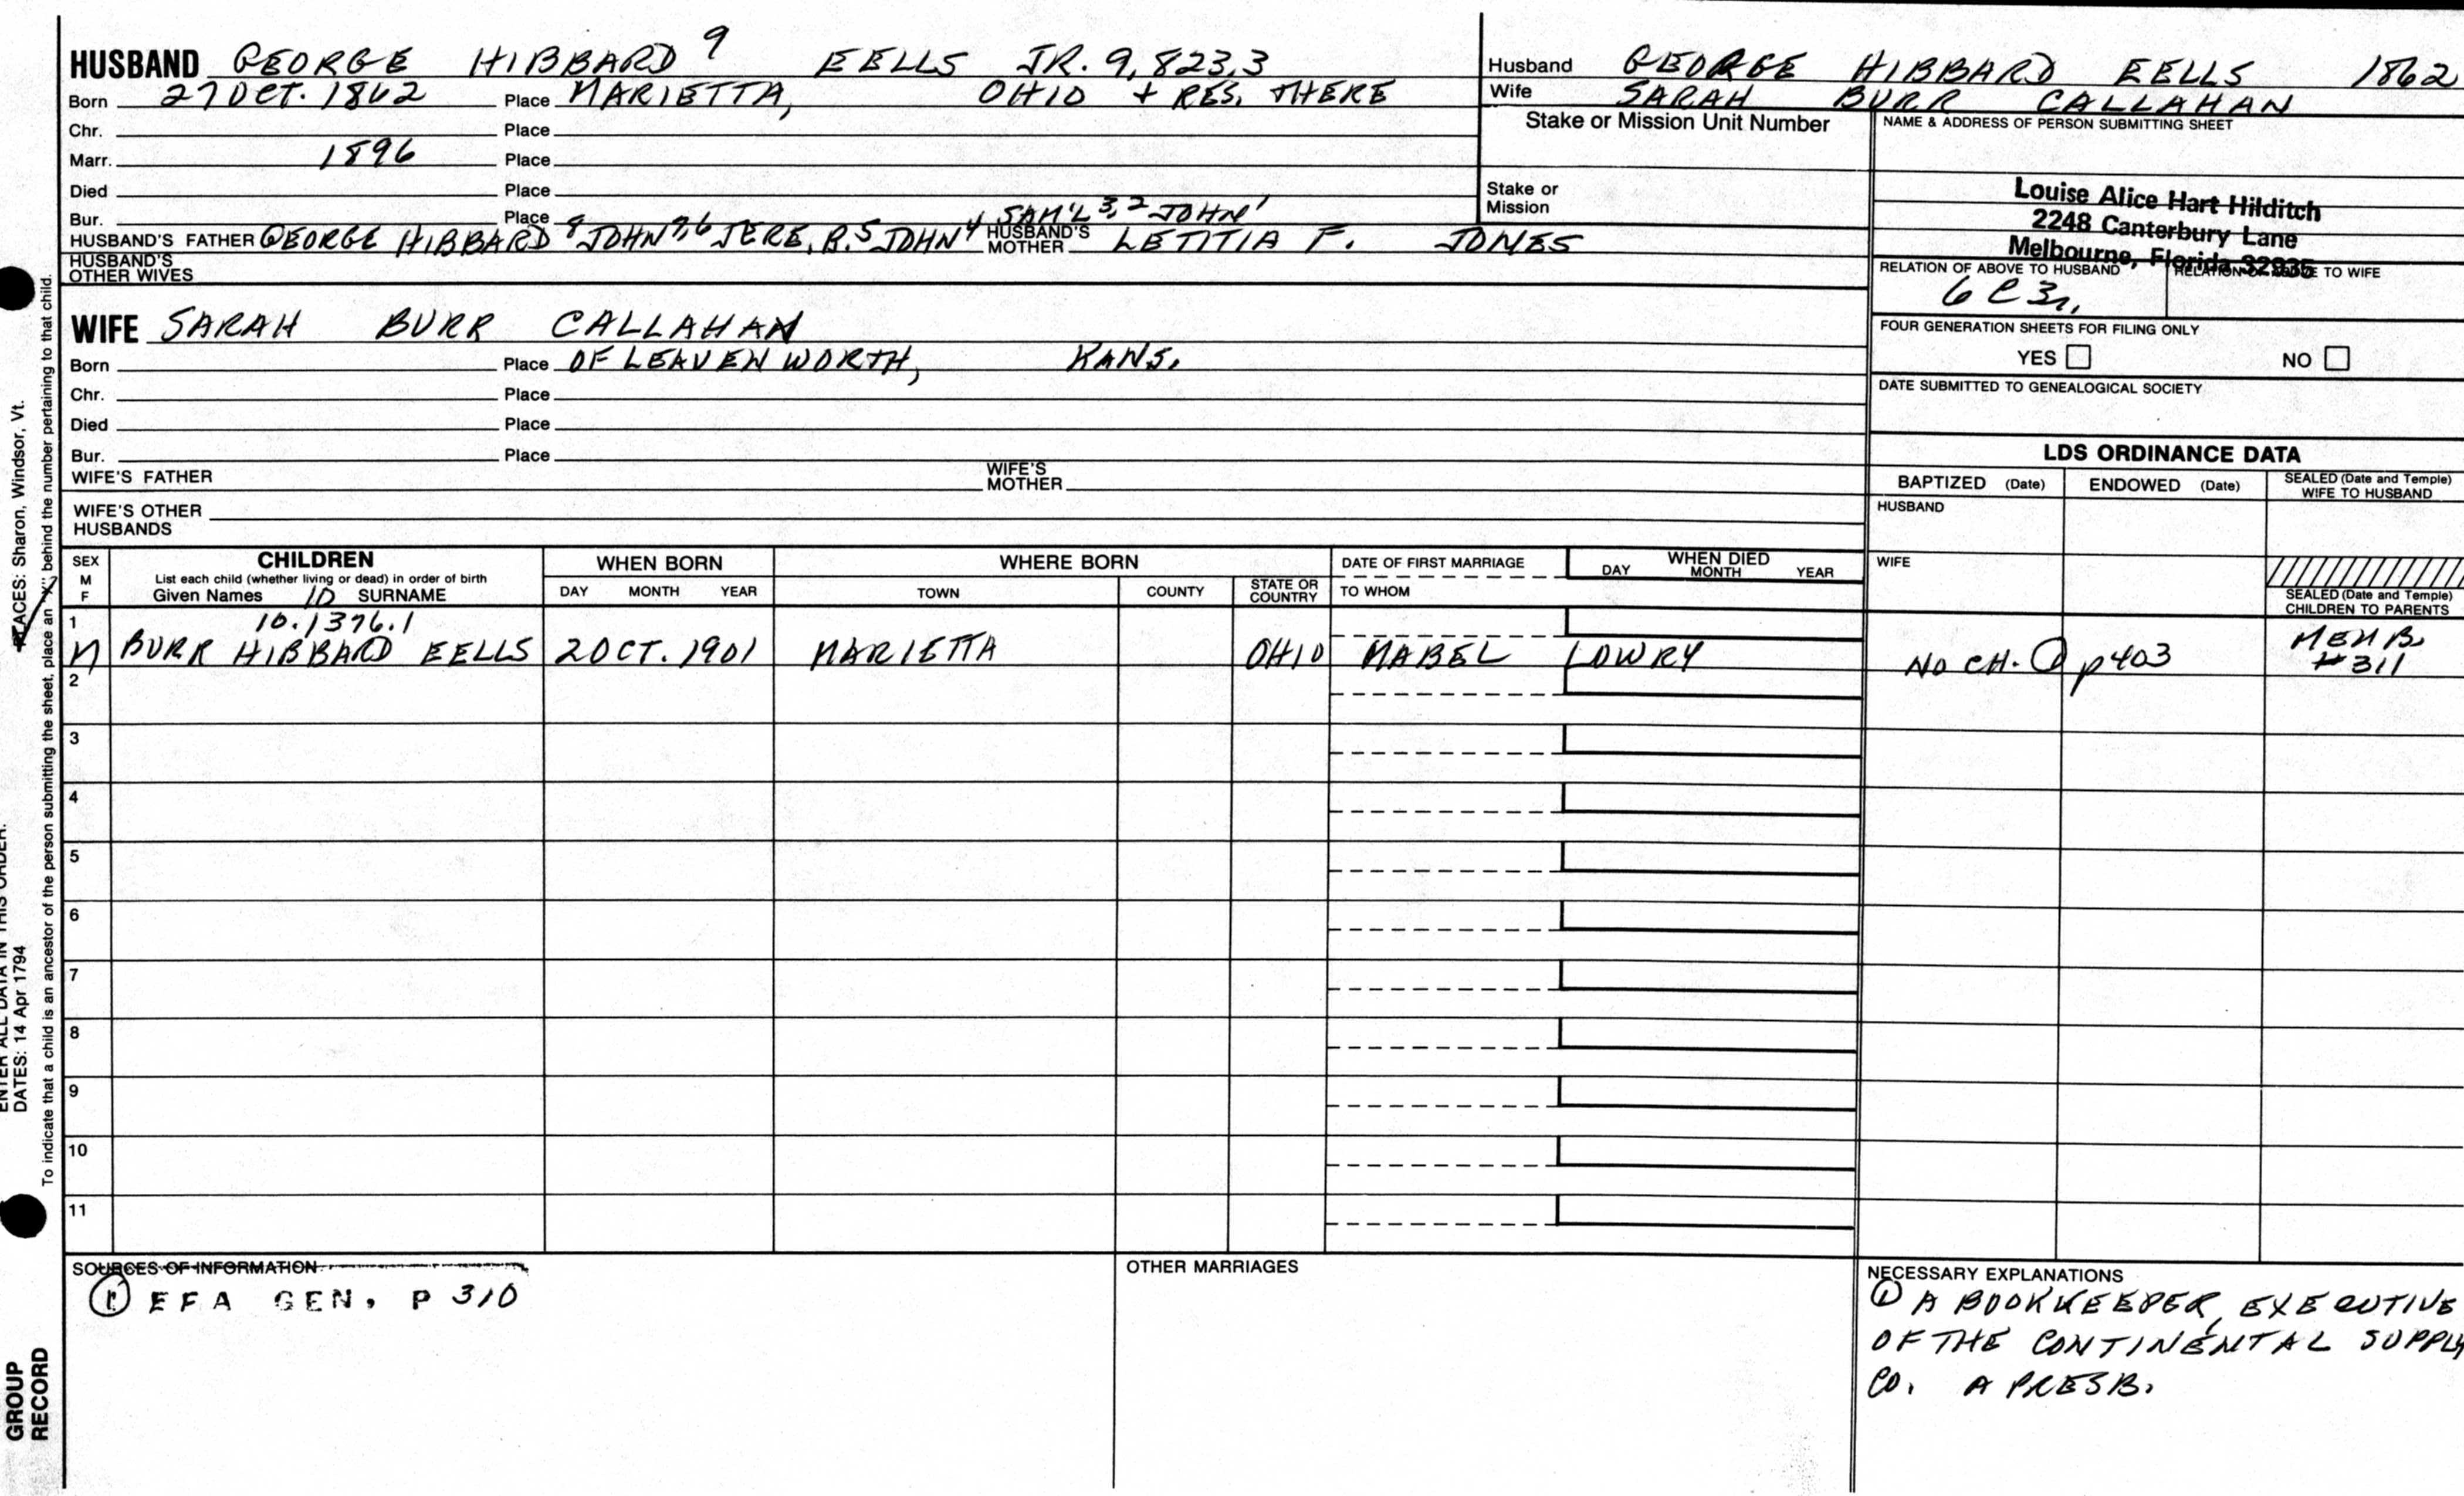 HUSBAND GEORGE HIBBARD 9 EELLS JR. 9,823.3
Born 27 OCT. 1862 Place MARIETTA, OHIO + RES. THERE
Chr. Place
Marr. 1896 Place
Died Place
Bur. Place SAM'L 3,2 JOHN 1
HUSBAND'S FATHER GEORGE HIBBARD 8 JOHN 7,6 JERE. B. 5 JOHN 4 HUSBAND'S MOTHER LETITIA F. JONES
HUSBAND'S OTHER WIVES
WIFE SARAH BURR CALLAHAN
Born Place OF LEAVENWORTH, KANS.
Chr. Place
Died Place
Bur. Place
WIFE'S FATHER WIFE'S MOTHER
WIFE'S OTHER HUSBANDS
Husband GEORGE HIBBARD EELLS 1862
Wife SARAH BURR CALLAHAN
Stake or Mission Unit Number
Stake or Mission
NAME & ADDRESS OF PERSON SUBMITTING SHEET
Louise Alice Hart Hilditch
2248 Canterbury Lane
Melbourne, Florida 32935
RELATION OF ABOVE TO HUSBAND RELATION OF ABOVE TO WIFE
6 C 3r,
FOUR GENERATION SHEETS FOR FILING ONLY
YES NO
DATE SUBMITTED TO GENEALOGICAL SOCIETY
LDS ORDINANCE DATA
BAPTIZED (Date) ENDOWED (Date) SEALED (Date and Temple) WIFE TO HUSBAND
HUSBAND
WIFE
SEALED (Date and Temple) CHILDREN TO PARENTS
SEX M F
CHILDREN
List each child (whether living or dead) in order of birth
Given Names 10 SURNAME
WHEN BORN
DAY MONTH YEAR
WHERE BORN
TOWN COUNTY STATE OR COUNTRY
DATE OF FIRST MARRIAGE
TO WHOM
WHEN DIED
DAY MONTH YEAR
1 10.1376.1
M BURR HIBBARD EELLS 2 OCT. 1901 MARIETTA OHIO MABEL LOWRY NO CH. p403 MEMB. #311
2
3
4
5
6
7
8
9
10
11
SOURCES OF INFORMATION
1 EFA GEN. P 310
OTHER MARRIAGES
NECESSARY EXPLANATIONS
1 A BOOKKEEPER, EXECUTIVE
OF THE CONTINENTAL SUPPLY
CO. A PRESB.
PLACES: Sharon, Windsor, Vt.
To indicate that a child is an ancestor of the person submitting the sheet, place an "X" behind the number pertaining to that child.
ENTER ALL DATA IN THIS ORDER:
DATES: 14 Apr 1794
GROUP
RECORD